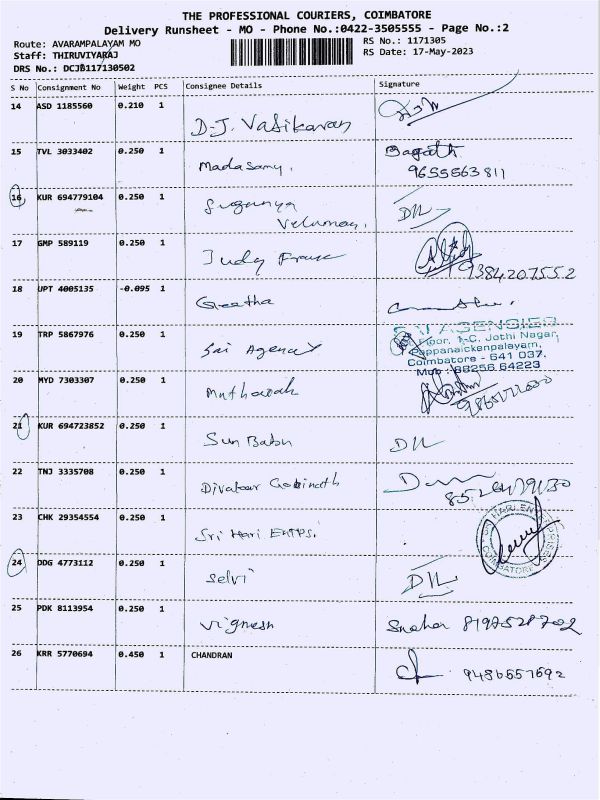 THE PROFESSIONAL COURIERS, COIMBATORE
Delivery Runsheet - MO - Phone No.:0422-3505555 - Page No.:2
Route: AVARAMPALAYAM MO
RS No.: 1171305
Staff: THIRUVIYARAJ
RS Date: 17-May-2023
DRS No.: DCJB117130502
S No Consignment No Weight PCS Consignee Details Signature
14 ASD 1185560 0.210 1
D.J. Vasikaran
15 TVL 3033402 0.250 1 Bagath
Madasamy. 9655563811
16 KUR 694779104 0.250 1 Suganya DIL
Velumay.
17 GMP 589119 0.250 1
Judy 9384207552
18 UPT 4005135 -0.095 1
Geetha
19 TRP 5867976 0.250 1
Sai Agency
Floor, 1-C, Jothi Nagar,
Pappanaickenpalayam,
Coimbatore - 641 037.
Mob : 88256 64223
20 MYD 7303307 0.250 1
21 KUR 694723852 0.250 1
Sun Babu DIL
22 TNJ 3335708 0.250 1
Gobinath
23 CHK 29354554 0.250 1
Sri Hari Entps.
SRI HARI ENTERPRISES
COIMBATORE
24 DDG 4773112 0.250 1
Selvi DIL
25 PDK 8113954 0.250 1
Vignesh
26 KRR 5770694 0.450 1 CHANDRAN
9486557692